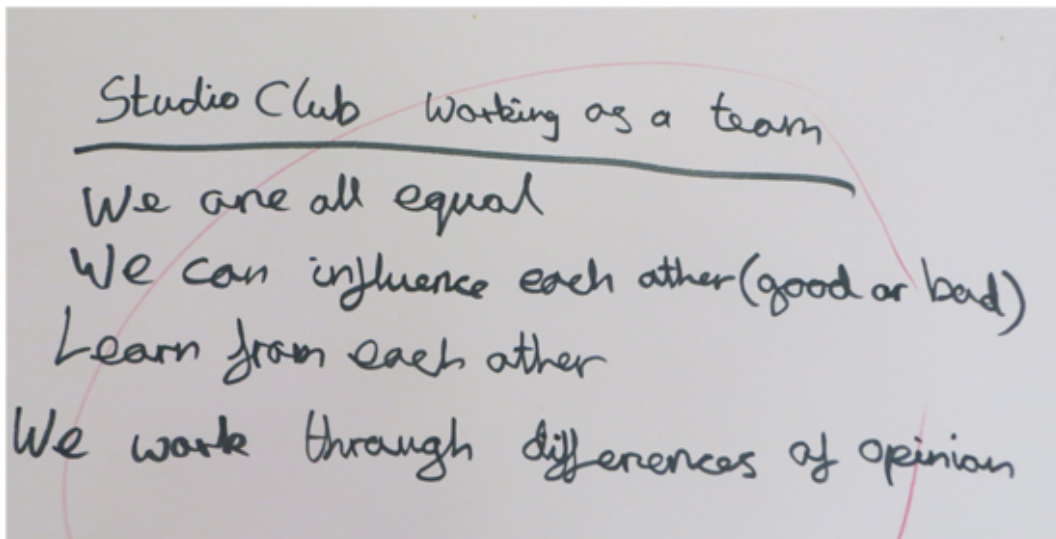 Studio Club Working as a team
We are all equal
We can influence each other (good or bad)
Learn from each other
We work through differences of opinion